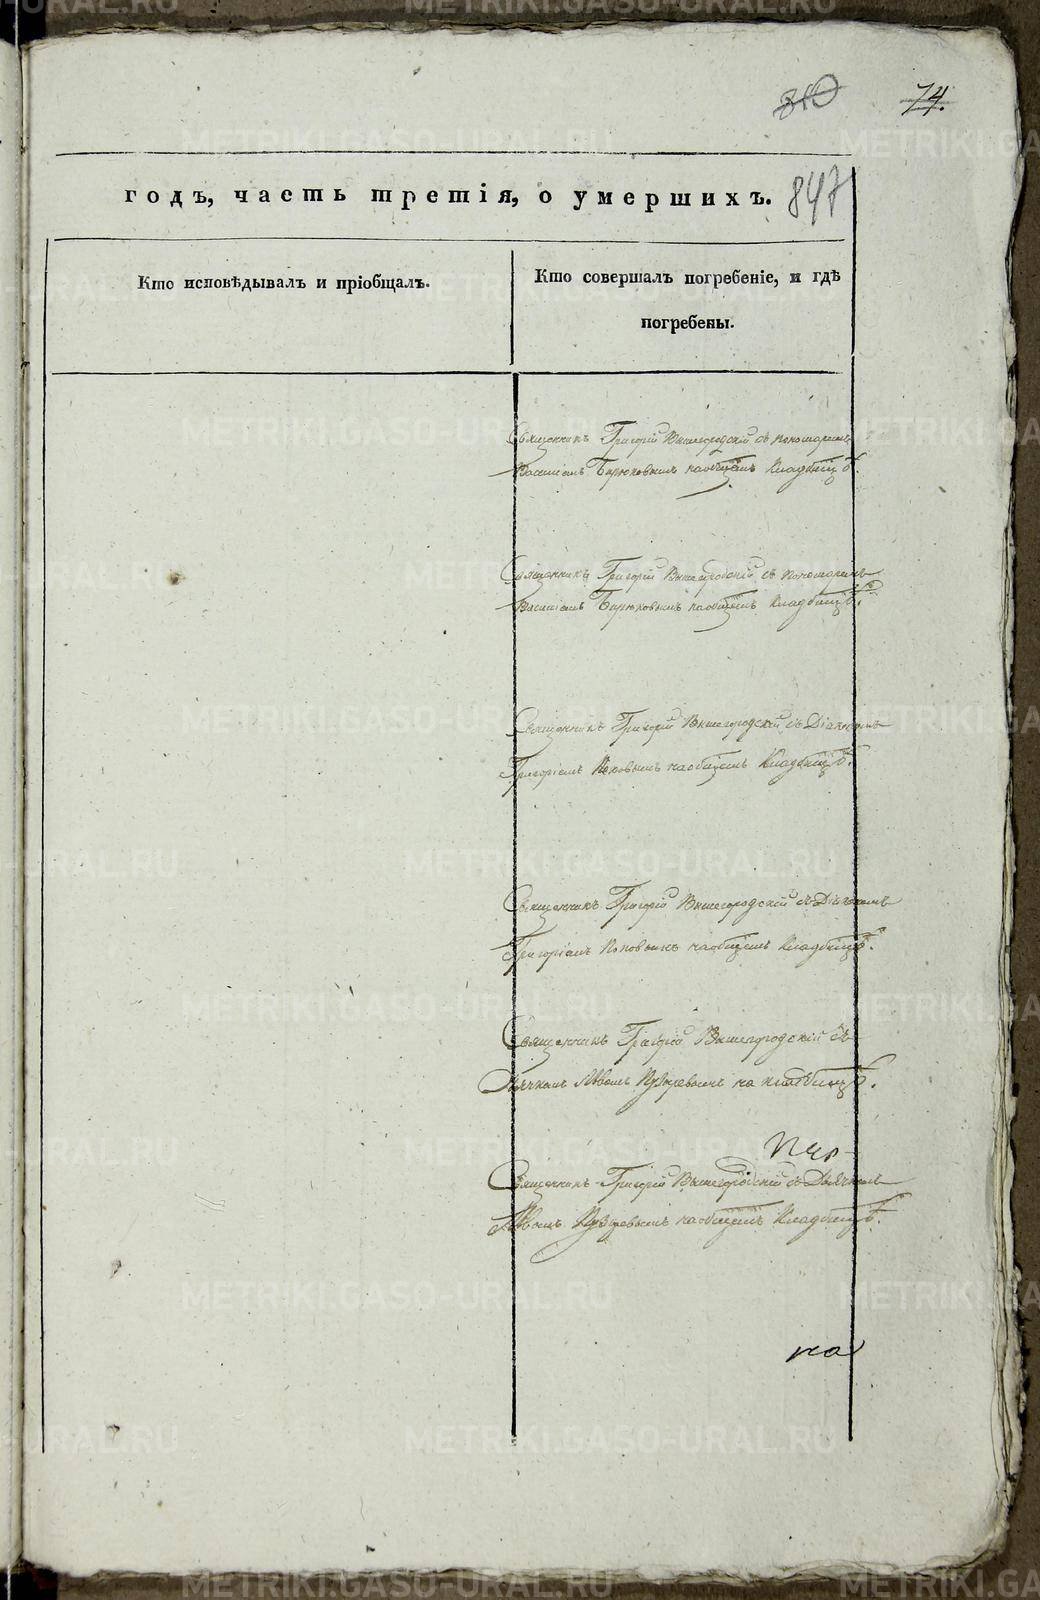 310
74.
годъ, часть третія, о умершихъ.
847
Кто исповѣдывалъ и пріобщалъ.
Кто совершалъ погребеніе, и гдѣ
погребены.
Священникъ Григорій Вышегородскій съ пономаремъ
Василіемъ Бирюковымъ на общемъ кладбищѣ.
Священникъ Григорій Вышегородскій съ пономаремъ
Василіемъ Бирюковымъ на общемъ кладбищѣ.
Священникъ Григорій Вышегородскій съ Діакономъ
Григоріемъ Поповымъ на общемъ кладбищѣ.
Священникъ Григорій Вышегородскій съ Діакономъ
Григоріемъ Поповымъ на общемъ кладбищѣ.
Священникъ Григорій Вышегородскій съ
Дьячкомъ на кладбищѣ.
Священникъ Григорій Вышегородскій съ Дьячкомъ
на общемъ кладбищѣ.
на
METRIKI.GASO-URAL.RU